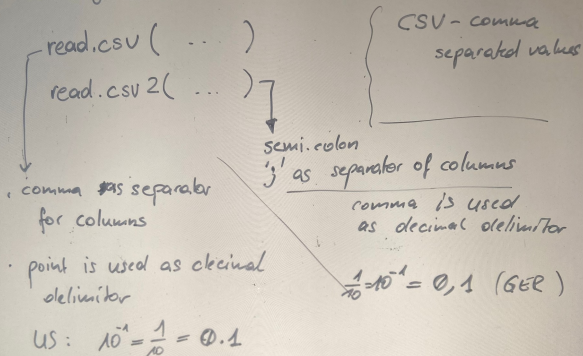 read.csv ( ... )
read.csv 2( ... )
CSV - comma
separated values
semi.colon
';' as separator of columns
comma is used
as decimal delimitor
1/10 = 10^-1 = 0,1 (GER)
· comma as separator
for columns
· point is used as decimal
delimitor
US: 10^-1 = 1/10 = 0.1